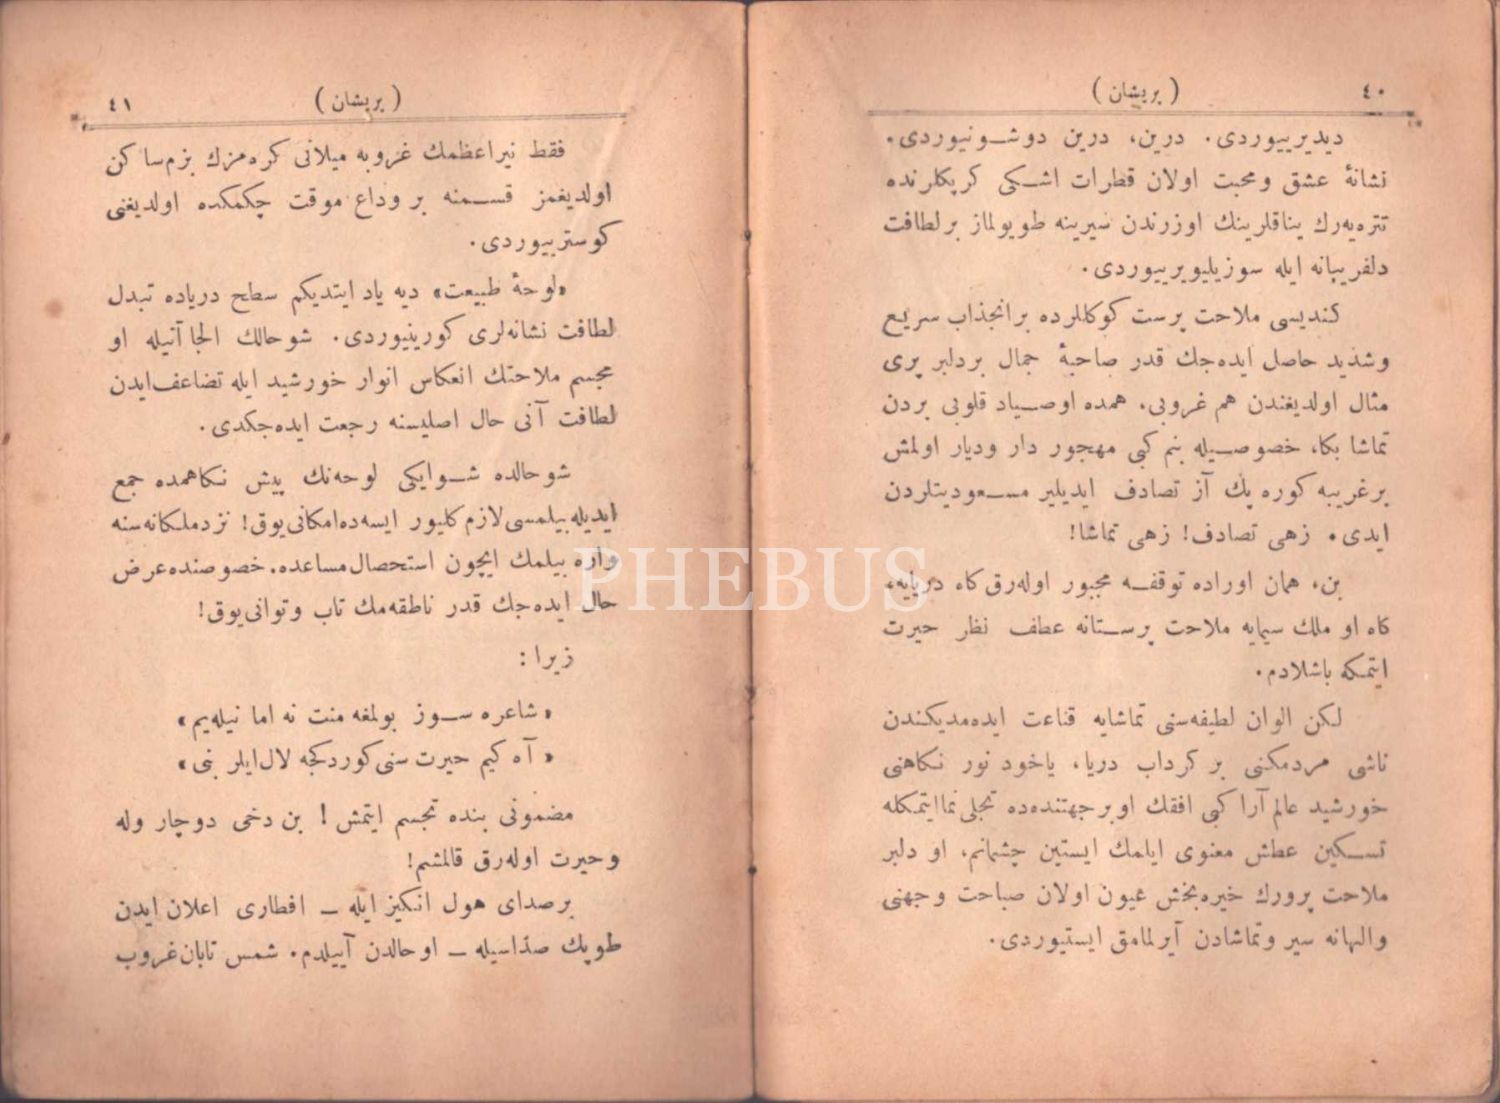 ٤٠
( پریشان )
دیدیرییوردی. درین، درین دوشونیوردی.
نشانۀ عشق ومحبت اولان قطرات اشکی کرپکلرنده
تتره‌یه‌رك یناقلرینك اوزرندن سیرینه طویولماز برلطافت
دلفریبانه ایله سوزیلیویرییوردی.
کندیسی ملاحت پرست کوکللرده برانجذاب سریع
وشدید حاصل ایده‌جك قدر صاحبۀ جمال بردلبر پری
مثال اولدیغندن هم غروبی، همده اوصیاد قلوبی بردن
تماشا بکا، خصوصیله بنم کبی مهجور دار ودیار اولمش
برغریبه کوره پك آز تصادف ایدیلیر مسعودیتلردن
ایدی. زهی تصادف! زهی تماشا!
بن، همان اوراده توقفه مجبور اوله‌رق کاه دریایه،
کاه او ملك سیمایه ملاحت پرستانه عطف نظر حیرت
ایتمکه باشلادم.
لکن الوان لطیفه‌سنی تماشایه قناعت ایده‌مدیکندن
ناشی مردمکنی بر کرداب دریا، یاخود نور نکاهنی
خورشید عالم آرا کبی افقك اوبرجهتنده‌ده تجلی نما ایتمکله
تسکین عطش معنوی ایلمك ایستین چشمانم، او دلبر
ملاحت پرورك خیره‌بخش عیون اولان صباحت وجهنی
والهانه سیر وتماشادن آیرلمامق ایستیوردی.
٤١
( پریشان )
فقط نیراعظمك غروبه میلانی کره‌مزك بزم‌ساکن
اولدیغمز قسمنه بر وداع موقت چکمکده اولدیغنی
کوستریییوردی.
«لوحۀ طبیعت» دیه یاد ایتدیکم سطح دریاده تبدل
لطافت نشانه‌لری کورینیوردی. شوحالك الجا آتیله او
مجسم ملاحتك انعکاس انوار خورشید ایله تضاعف‌ایدن
لطافت آنی حال اصلیسنه رجعت ایده‌جکدی.
شوحالده شوایکی لوحه‌نك پیش نکاهمده جمع
ایدیله‌بیلمسی لازم‌کلیور ایسه‌ده‌امکانی‌یوق! نزدملکانه‌سنه
واره‌بیلمك ایچون استحصال‌مساعده. خصوصنده‌عرض
حال ایده‌جك قدر ناطقه‌مك تاب وتوانی‌یوق!
زیرا :
« شاعره سوز بولمغه منت نه اما نیله‌یم »
« آه کیم حیرت سنی‌کوردکجه لال‌ایلر بنی »
مضمونی بنده تجسم ایتمش! بن دخی دوچار وله
وحیرت اوله‌رق قالمشم!
برصدای هول انکیز ایله ــ افطاری اعلان ایدن
طوپك صداسیله ــ اوحالدن آییلدم. شمس تابان‌غروب
PHEBUS